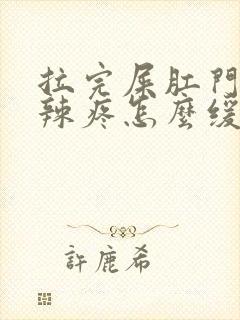 拉完屎肛門
辣疼怎麼緩
許鹿希